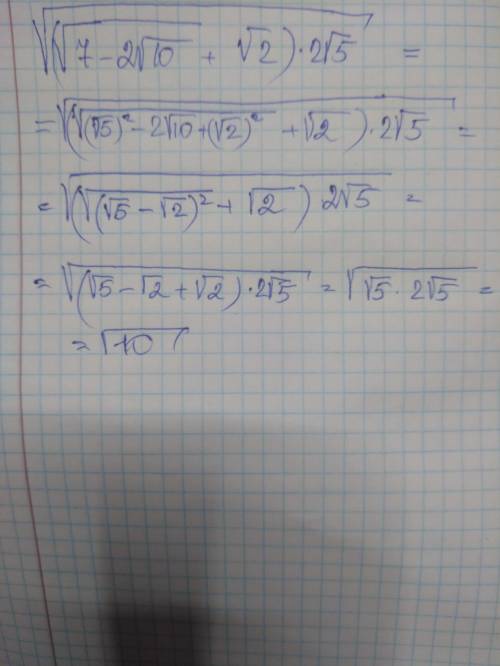 √((√(7 - 2√10) + √2) · 2√5) =
= √((√((√5)² - 2√10 + (√2)²) + √2) · 2√5) =
= √((√((√5 - √2)²) + √2) 2√5) =
= √((√5 - √2 + √2) · 2√5) = √(√5 · 2√5) =
= √10